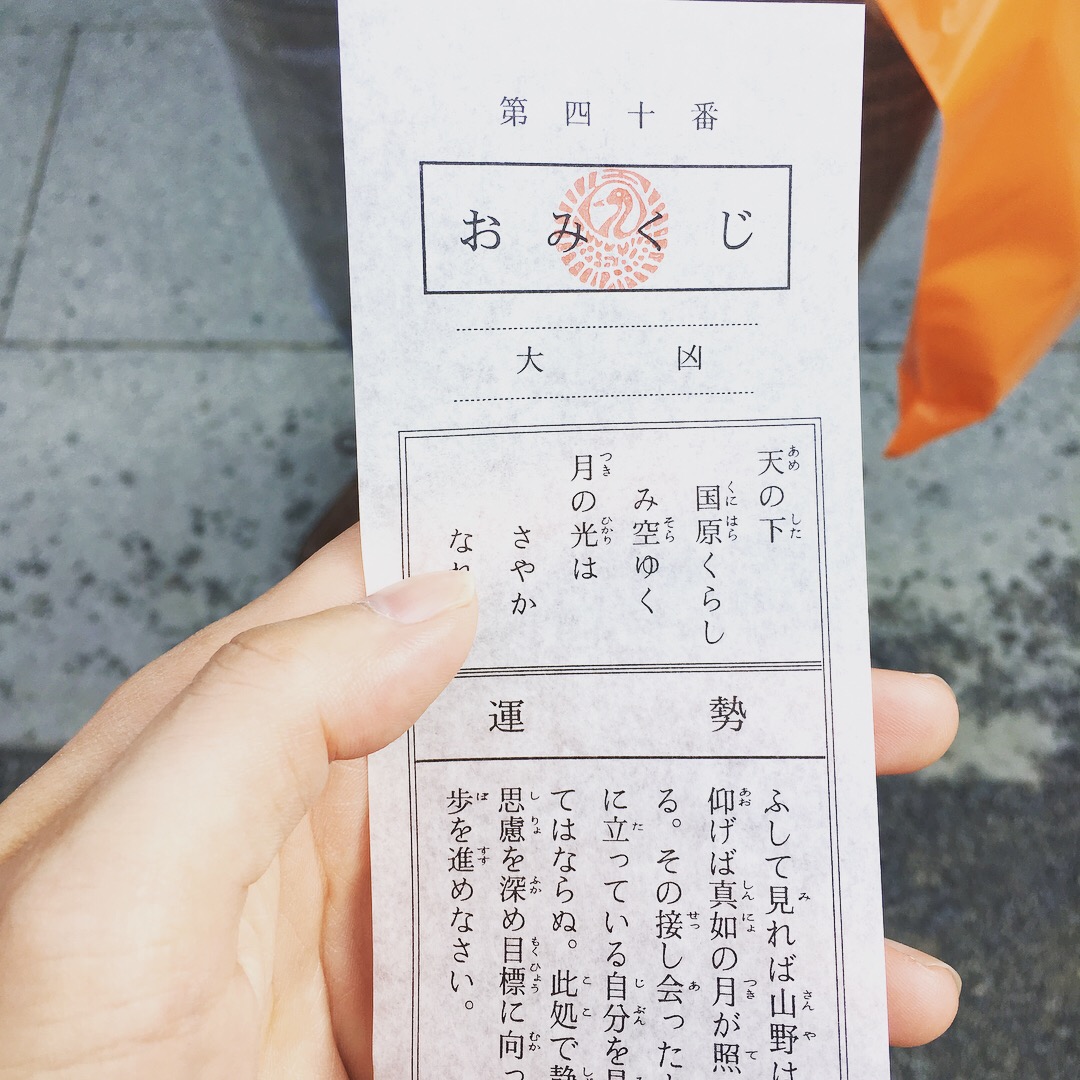 第四十番
おみくじ
大凶
天の下
国原くらし
み空ゆく
月の光は
さやか
な
運勢
ふして見れば山野は
仰げば真如の月が照
る。その接し会った
に立っている自分を見
てはならぬ。此処で静
思慮を深め目標に向っ
歩を進めなさい。